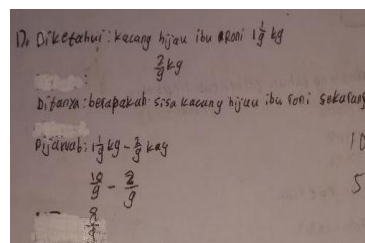 17. Diketahui : kacang hijau ibu Roni 1 1/9 kg
2/9 kg
Ditanya : berapakah sisa kacang hijau ibu roni sekarang
Dijawab : 1 1/9 kg - 2/9 kg
10/9 - 2/9
8/9
10
5